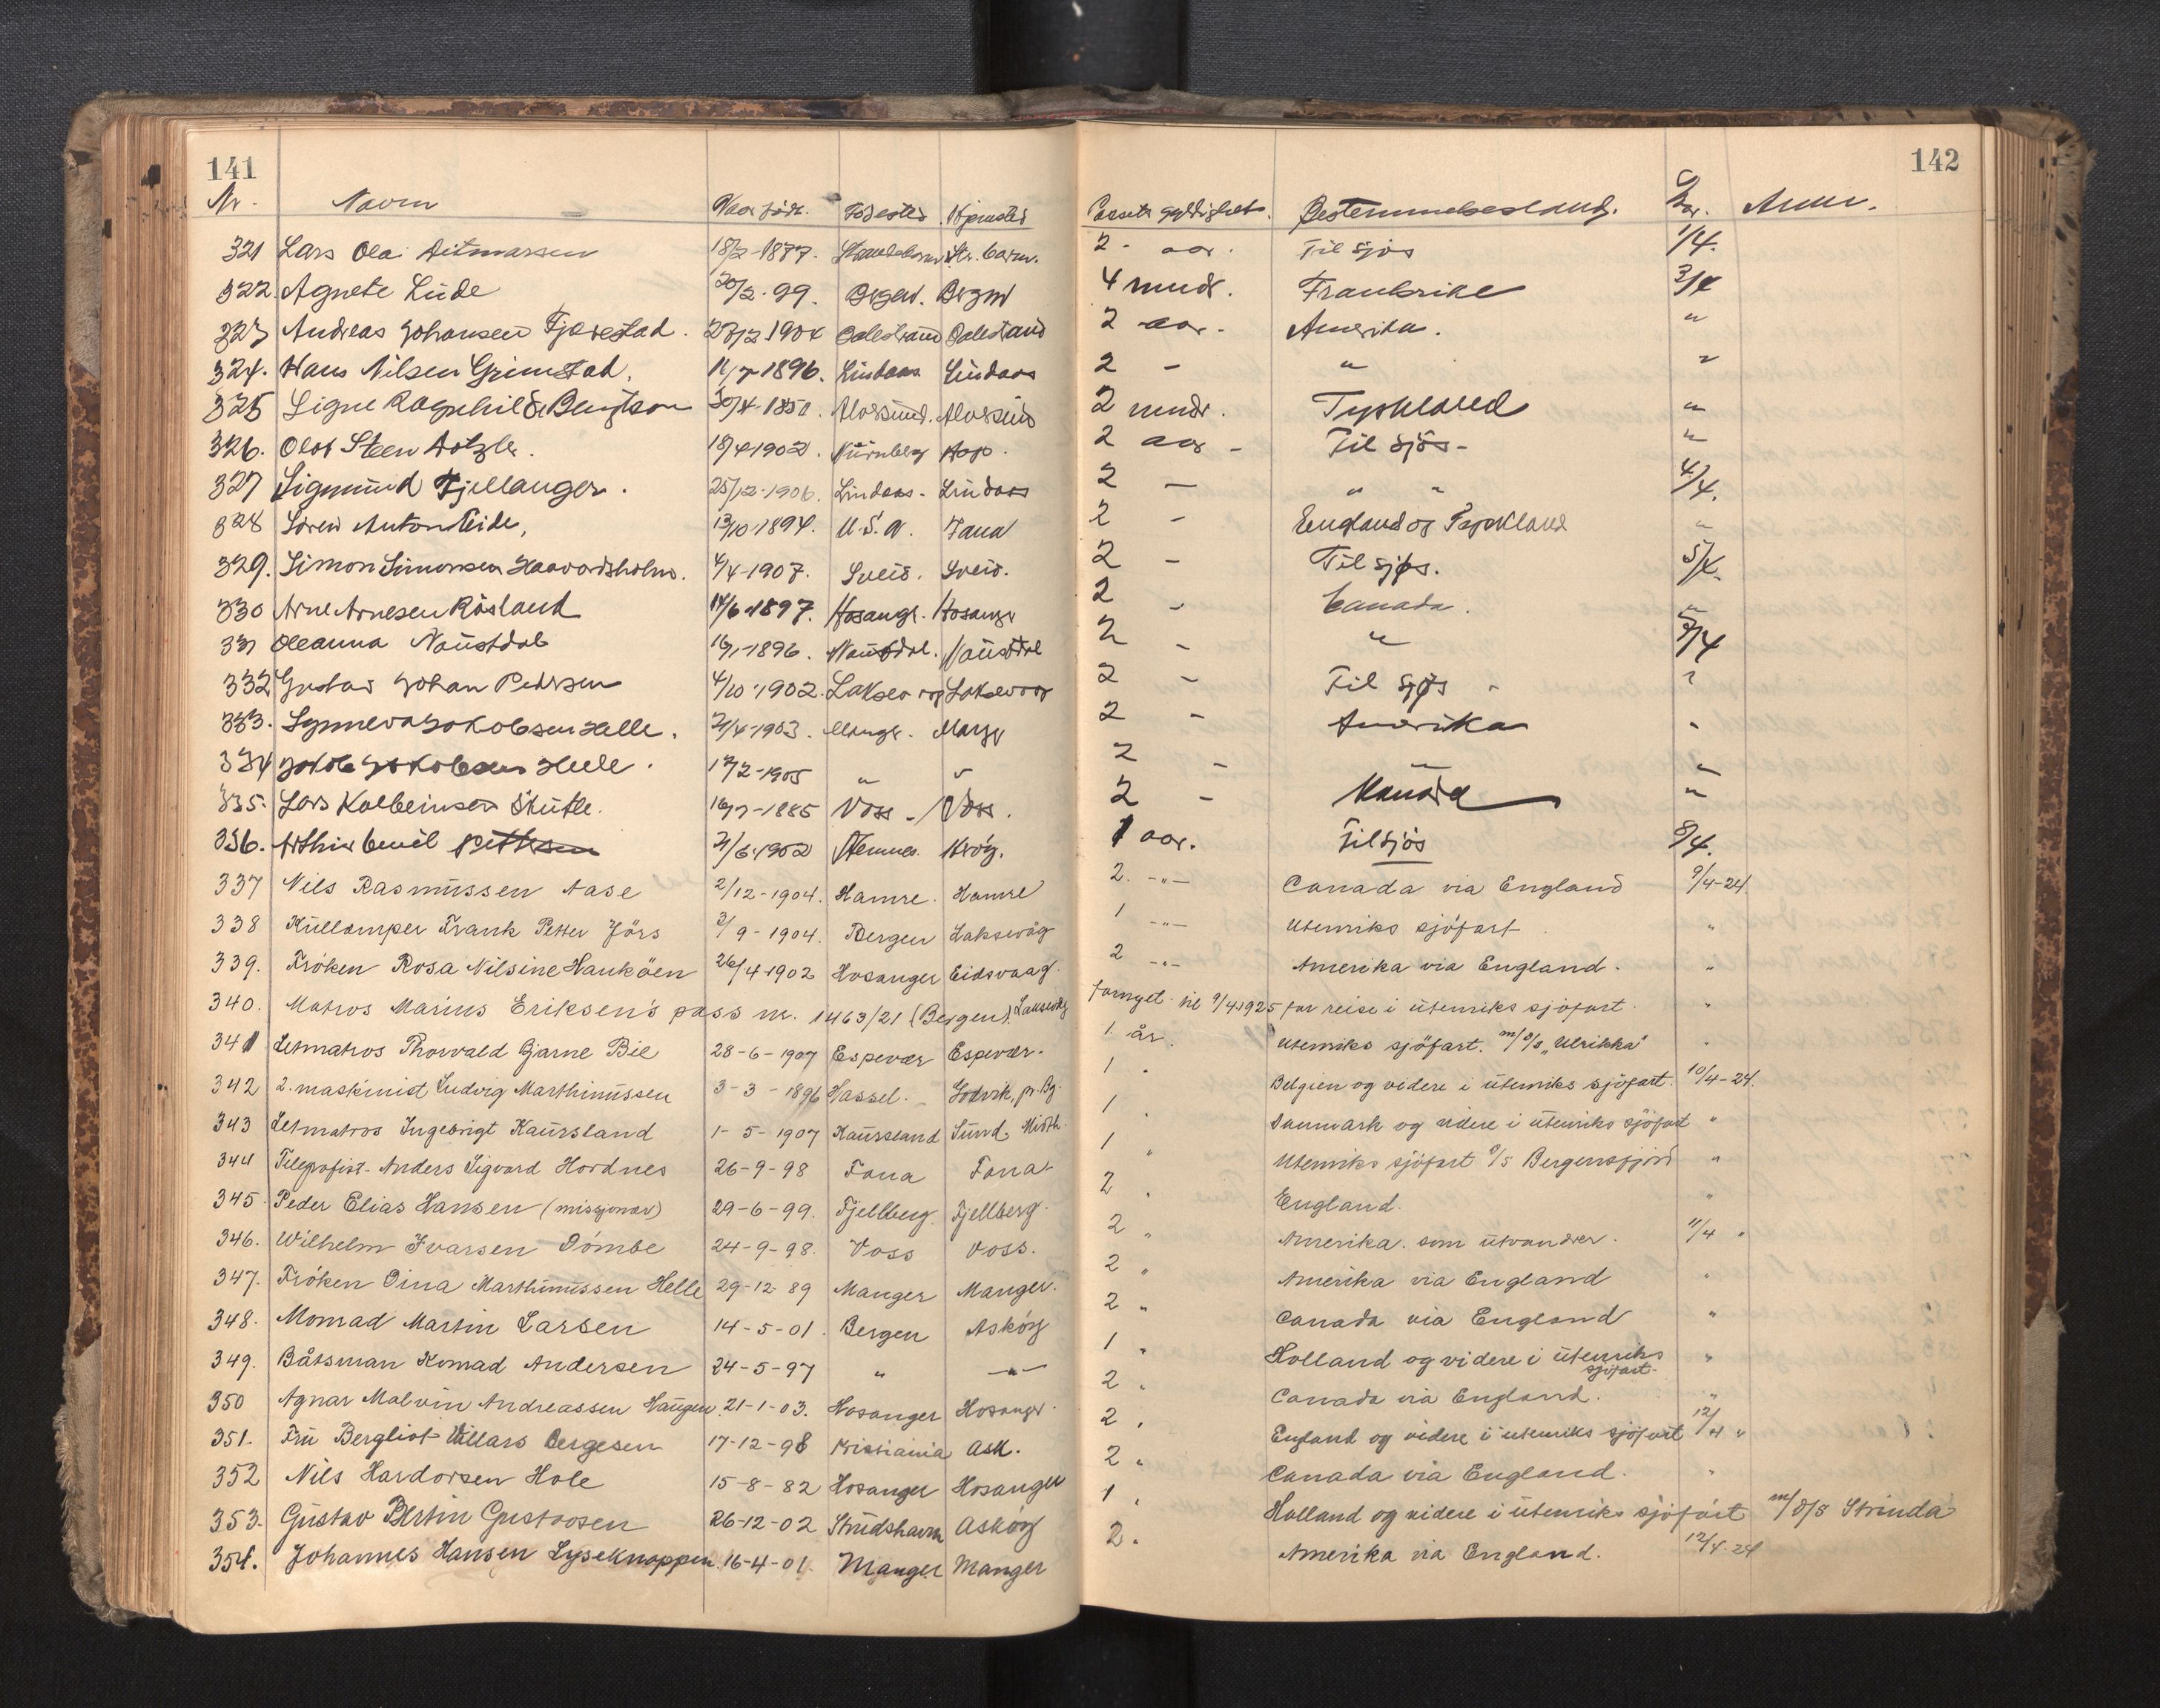 141 142
Nr. Navn Naar født. Fødested Hjemsted Passets gyldighet. Bestemmelsesland. Dat. Anm.
321 Lars Ola Ditmarssen 18/2-1877. 2 - aar. Til sjøs 1/4.
322 Agnete Lude 20/2-99. Bergen. Bergen 4 mndr. Frankrike 3/4
323 Andreas Johansen Fjærestad. 1904 2 aar. Amerika. "
324. Hans Nilsen Grimstad. 11/7-1896. Lindaas Lindaas 2 - " "
325 Signe Ragnhild Bengtson 30/4-1851. Aalesund. Aalesund 2 mndr. Tyskland "
326. Olof Steen Dotzler. 18/4-1902. Nürnberg Hop. 2 aar - Til sjøs - "
327 Sigmund Fjellanger. 25/12-1906. Lindaas - Lindaas 2 - " " 4/4.
328 Søren Anton Eide, 13/10-1894. U.S.A. Fana 2 - England og Tyskland "
329. Simon Simonsen Haavardsholm. 4/4-1907. Sveio. Sveio. 2 - Til sjøs. 5/4.
330 Arne Arnesen Røsland 14/6-1897. Hosangr. Hosangr 2 - Canada. "
331 Oleanna Naustdal 16/1-1896. Naustdal. Naustdal 2 - " 7/4
332 Gustav Johan Petersen 4/10-1902. Laksevaag Laksevaag 2 - Til sjøs - "
333. Synneva Jakobsen Helle. 2/4-1903. Mangr. Mangr 2 - Amerika "
334 Jakob Jakobsen Helle. 17/2-1905 " " 2 - " "
335. Lars Kolbeinsen Skutle. 16/7-1885 Voss - Voss. 2 - Kanada "
336. Arthur Emil Pettersen 2/6-1902 1 aar. Til sjøs 8/4.
337 Nils Rasmussen Aase 2/12-1904. Hamre. Hamre 2. -"- Canada via England 9/4-24.
338 Küllamper Frank Petter Jörs 3/9-1904. Bergen Laksevåg 1 -"- Utenriks sjöfart "
339. Fröken Rosa Nilsine Hauköen 26/4-1902 Hosanger Eidsvaag 2 -"- Amerika via England. "
340. Matros Marius Eriksen's pass nr. 1463/21 (Bergen). Laksevåg fornyet til 9/4-1925 for reise i utenriks sjöfart. "
341 Letmatros Thorvald Bjarne Bie 28-6-1907 Espevær Espevær. 1. år. Utenriks sjöfart. m/s "Ulrikka" "
342 2. maskinist Ludvig Marthinussen 3-3-1896 Hassel. Godvik, pr. Bg. 1 " Belgien og videre i utenriks sjöfart. 10/4-24.
343 Letmatros Ingebrigt Kaursland 1-5-1907 Kaursland Sund, Midth. 1 " Danmark og videre i utenriks sjöfart "
344 Telegrafist Anders Sigvard Hordnes 26-9-98 Fana Fana 1 " Utenriks sjöfart S/S Bergensfjord "
345. Peder Elias Hansen (misjonær) 29-6-99. Fjellberg Fjellberg. 2 " England. "
346. Wilhelm Ivarsen Dömbe 24-9-98. Voss Voss. 2 " Amerika. som utvandrer. 11/4 "
347. Fröken Dina Marthinussen Helle 29-12-89 Manger Manger. 2 " Amerika via England "
348. Monrad Martin Larsen 14-5-01. Bergen Asköy 2 " Canada via England "
349. Båtsman Konrad Andersen 24-5-97 " -"- 1 " Holland og videre i utenriks sjöfart. "
350 Agnar Malvin Andreassen Haugen. 21-1-03. Hosanger Hosangr. 2 " Canada via England. "
351. Fru Bergliot Willars Bergesen 17-12-98 Kristiania Ask. 2 " England og videre i utenriks sjöfart 12/4 "
352 Nils Hardorsen Hole 15-8-82 Hosanger Hosanger 2 " Canada via England. "
353. Gustav Bertin Gustavsen 26-12-02 Strudshavn Asköy 1 " Holland og videre i utenriks sjöfart m/s/s Strinda
354. Johannes Hansen Lyseknappen. 16-4-01. Manger Manger 2. " Amerika via England. 12/4-24